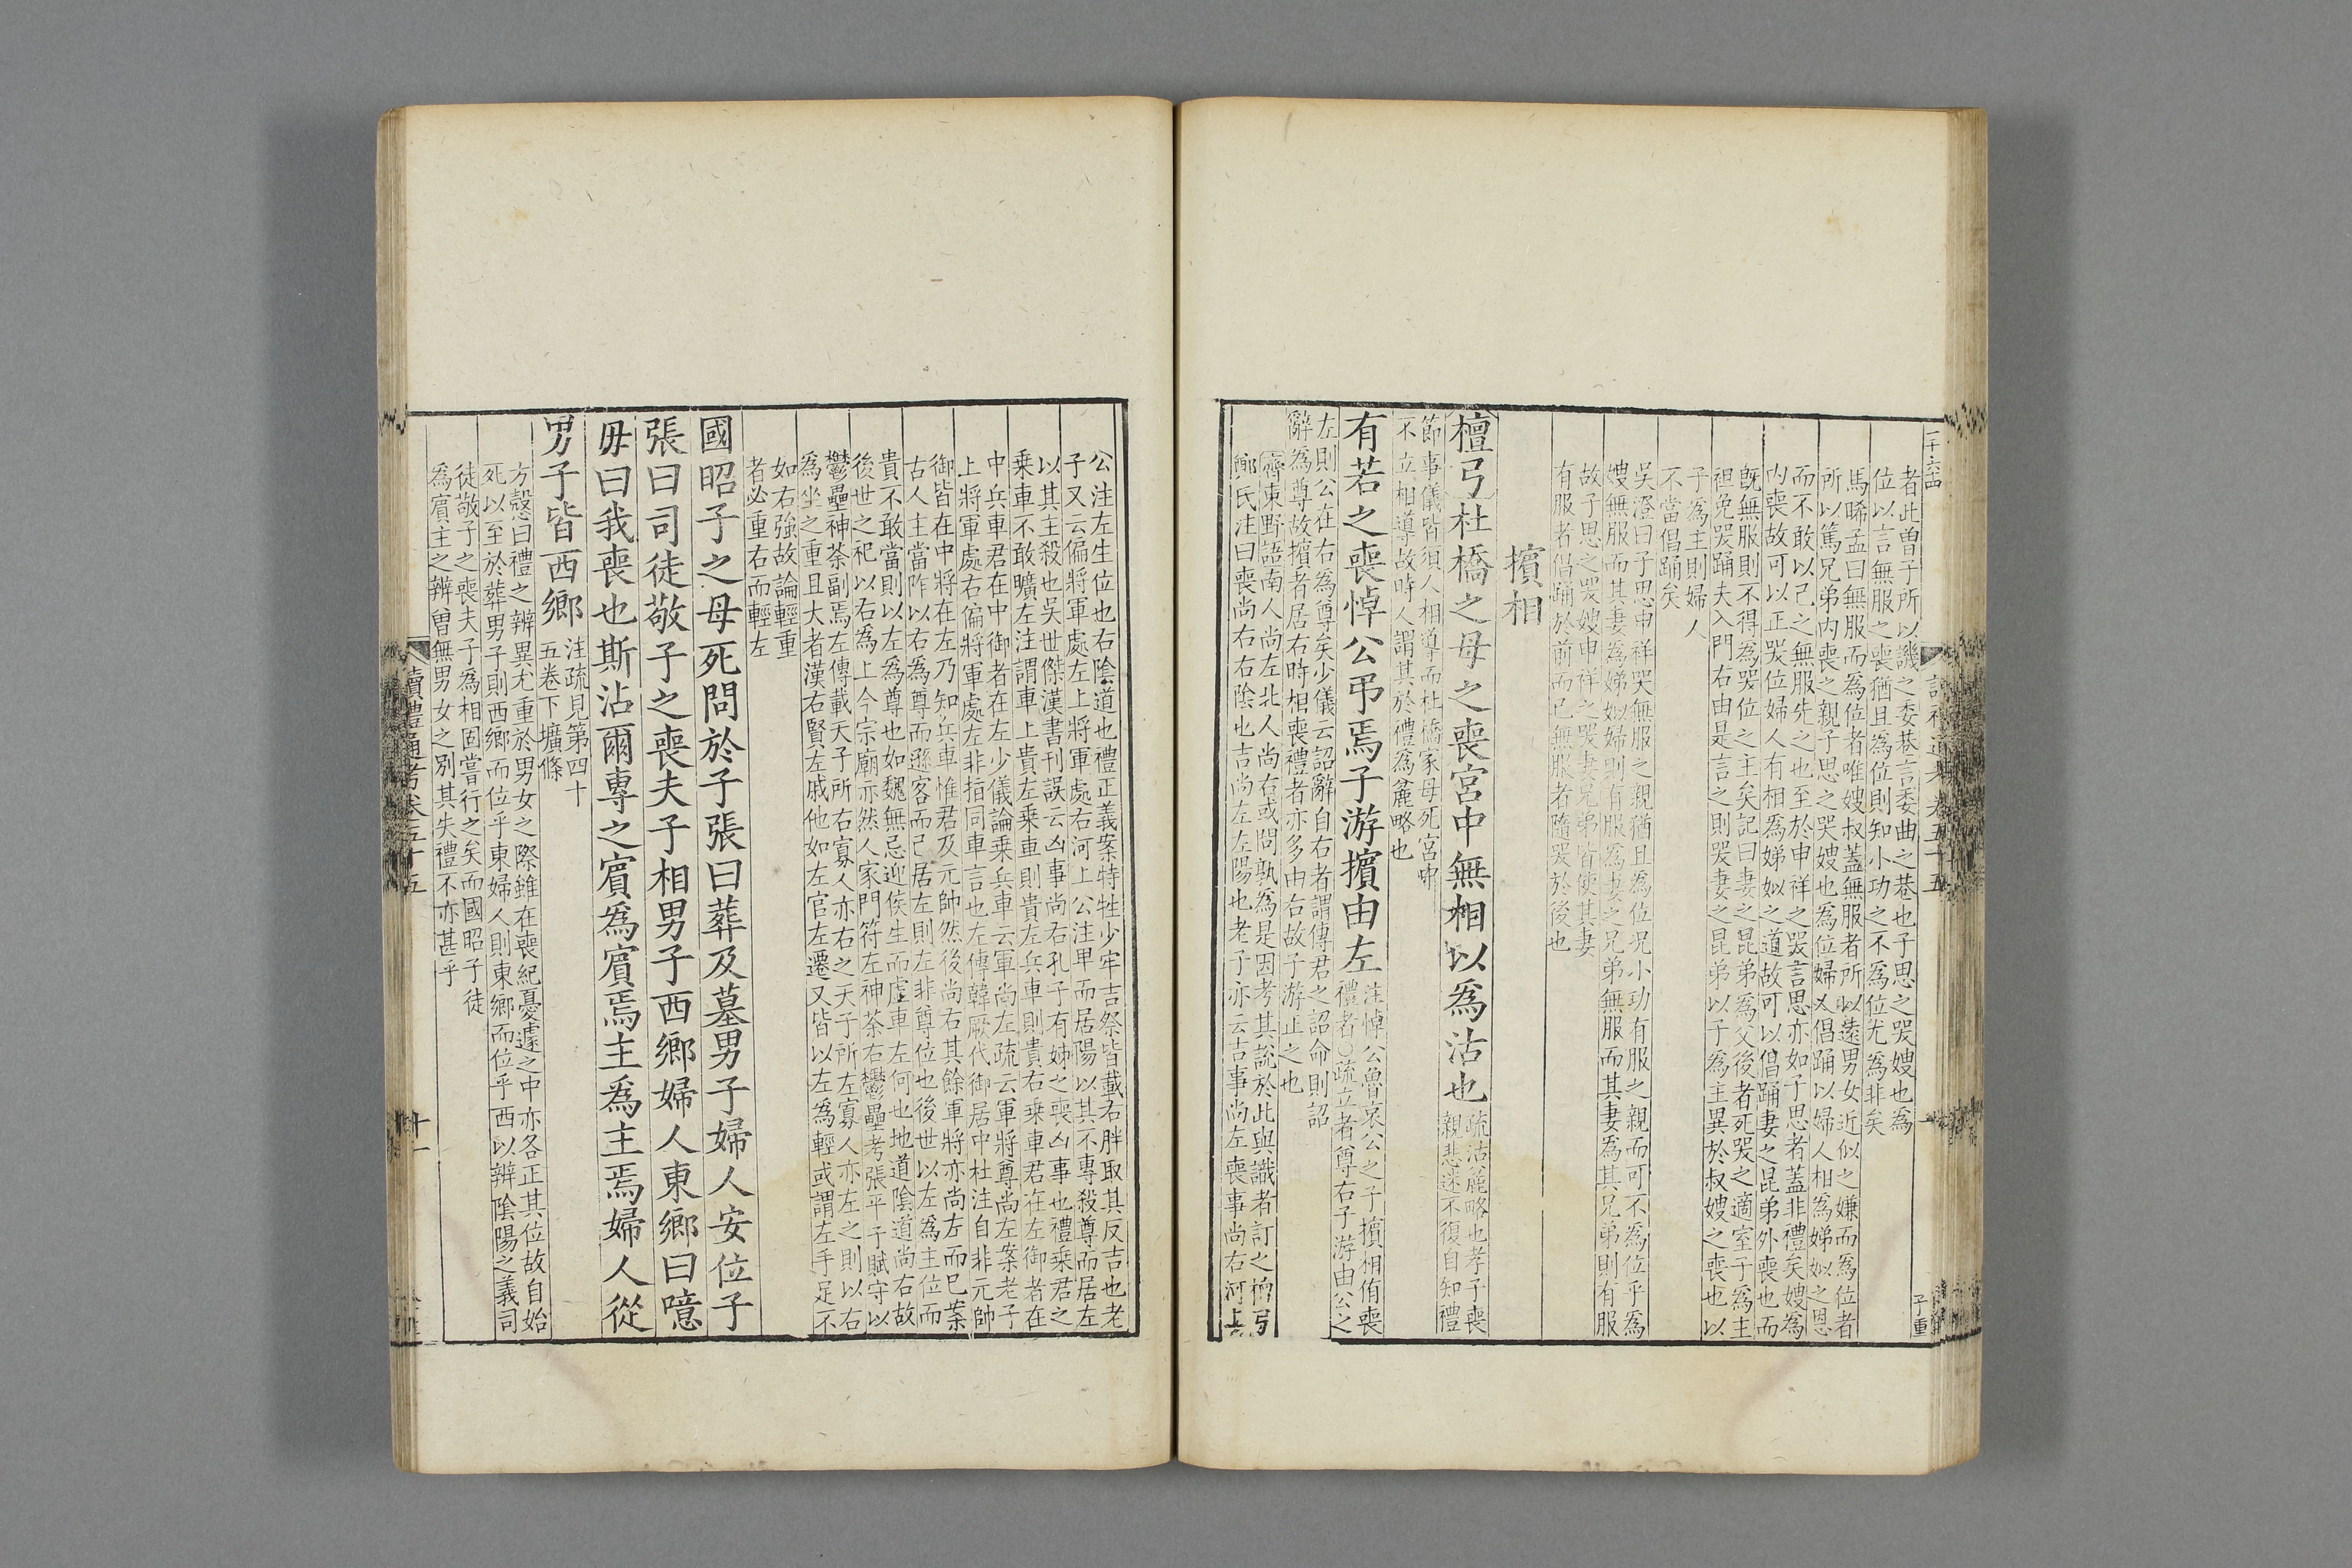 者此曽子所以譏之委巷言委曲之巷也子思之哭嫂也爲
位以言無服之喪猶且爲位則知小功之不爲位尤爲非矣
馬晞孟曰無服而爲位者唯嫂叔蓋無服者所以遠男女近似之嫌而爲位者
所以篤兄弟内喪之親子思之哭嫂也爲位婦人倡踊以婦人相爲娣姒之恩
而不敢以己之無服先之也至於申祥之哭言思亦如子思者蓋非禮矣嫂爲
内喪故可以正哭位婦人有相爲娣姒之道故可以倡踊妻之昆弟外喪也而
旣無服則不得爲哭位之主矣記曰妻之昆弟爲父後者死哭之適室子爲主
袒免哭踊夫入門右由是言之則哭妻之昆弟以子爲主異於叔嫂之喪也以
子爲主則婦人
不當倡踊矣
吳澄曰子思申祥哭無服之親猶且爲位况小功有服之親而可不爲位乎爲
嫂無服而其妻爲娣姒婦則有服爲妻之兄弟無服而其妻爲其兄弟則有服
故子思之哭嫂申祥之哭妻兄弟皆使其妻
有服者倡踊於前而己無服者隨哭於後也
擯相
檀弓杜橋之母之喪宮中無相以爲沽也
疏沽麄略也孝子喪
親悲迷不復自知禮
節事儀皆須人相導而杜橋家母死宮中
不立相導故時人謂其於禮爲麄略也
有若之喪悼公弔焉子游擯由左
注悼公魯哀公之子擯相侑喪
禮者○疏立者尊右子游由公之
左則公在右爲尊矣少儀云詔辭自右者謂傳君之詔命則詔
辭爲尊故擯者居右時相喪禮者亦多由右故子游正之也
齊東野語南人尚左北人尚右或問孰爲是因考其說於此與識者訂之檀弓
鄭氏注曰喪尚右右陰也吉尚左左陽也老子亦云吉事尚左喪事尚右河上
公注左生位也右陰道也禮正義案特牲少牢吉祭皆載右胖取其反吉也老
子又云偏將軍處左上將軍處右河上公注甲而居陽以其不專殺尊而居左
以其主殺也吳世傑漢書刊誤云凶事尚右孔子有姊之喪凶事也禮乘君之
乘車不敢曠左注謂車上貴左乘車則貴左兵車則貴右乘車君在左御者在
中兵車君在中御者在左少儀論乘兵車云軍尚左疏云軍將尊尚左案老子
上將軍處右偏將軍處左非指同車言也左傳韓厥代御居中杜注自非元帥
御皆在中將在左乃知兵車惟君及元帥然後尚右其餘軍將亦尚左而已案
古人主當阼以右爲尊而遜客而己居左則左非尊位也後世以左爲主位而
貴不敢當則以左爲尊也如魏無忌迎侯生而虛車左何也地道陰道尚右故
後世之祀以右爲上今宗廟亦然人家門符左神荼右鬱壘考張平子賦守以
鬱壘神荼副焉左傳載天子所右寡人亦右之天子所左寡人亦左之則以右
爲坐之重且大者漢右賢左戚他如左官左遷又皆以左爲輕或謂左手足不
如右強故論輕重
者必重右而輕左
國昭子之母死問於子張曰葬及墓男子婦人安位子
張曰司徒敬子之喪夫子相男子西鄉婦人東鄉曰噫
毋曰我喪也斯沾爾專之賓爲賓焉主爲主焉婦人從
男子皆西鄉
注疏見第四十
五卷下壙條
方慤曰禮之辨異尤重於男女之際雖在喪紀憂遽之中亦各正其位故自始
死以至於葬男子則西鄉而位乎東婦人則東鄉而位乎西以辨陰陽之義司
徒敬子之喪夫子爲相固嘗行之矣而國昭子徒
爲賓主之辨曽無男女之別其失禮不亦甚乎
讀禮通考卷五十五
十一